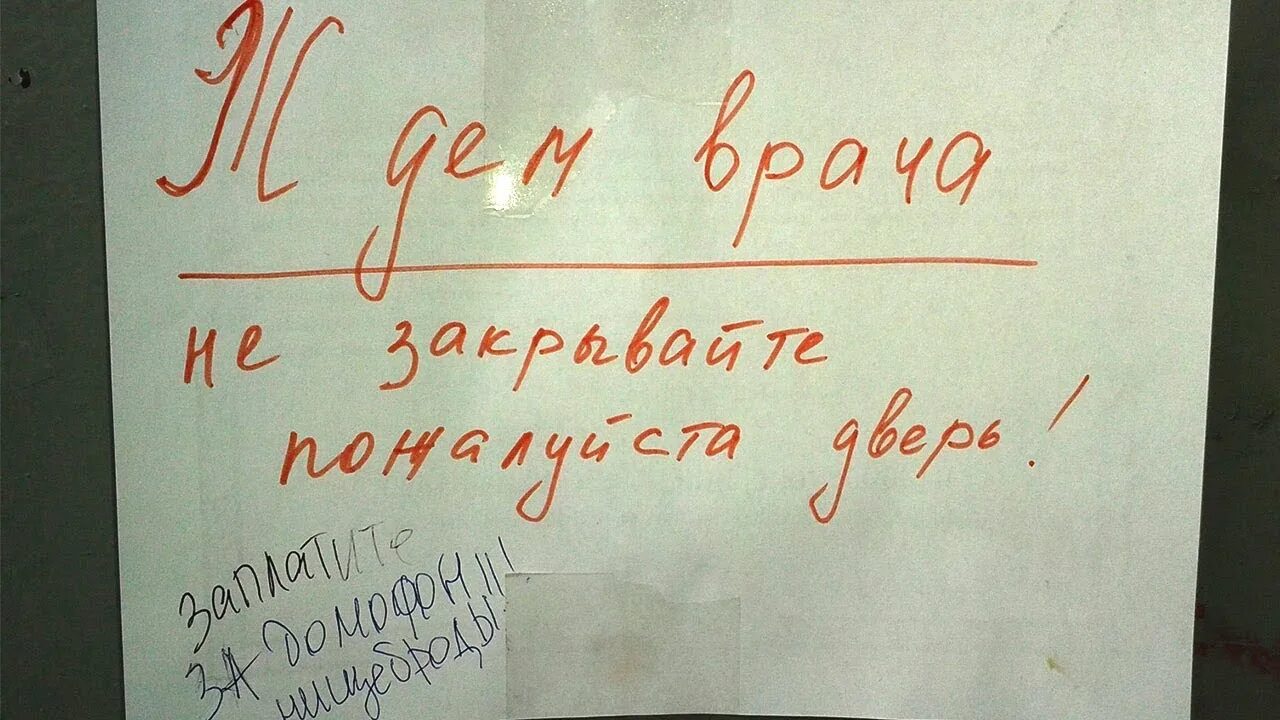 Ждем врача
не закрывайте
пожалуйста дверь!
заплатите
за домофон!!!
нищеброды